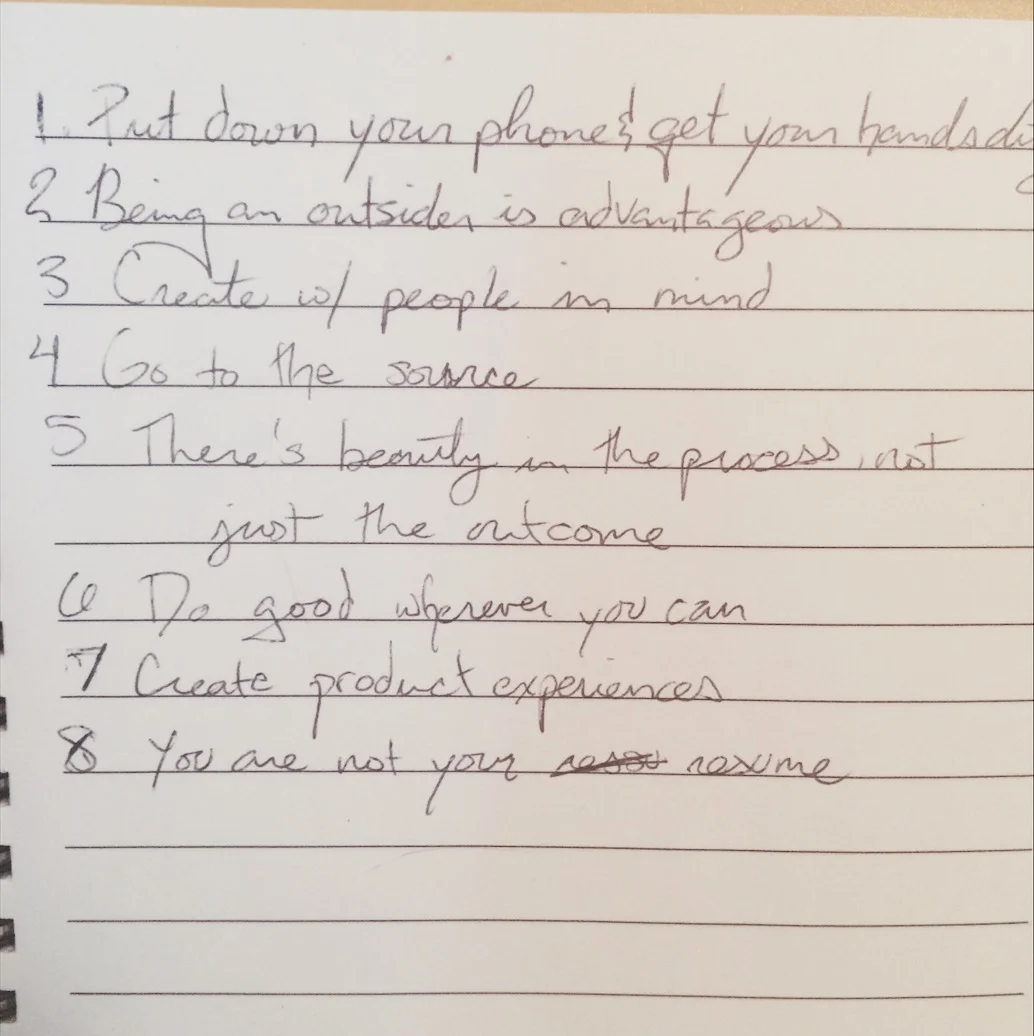 1. Put down your phone & get your hands
2 Being an outsider is advantageous
3 Create w/ people in mind
4 Go to the source
5 There's beauty in the process, not
just the outcome
6 Do good wherever you can
7 Create product experiences
8 You are not your resume